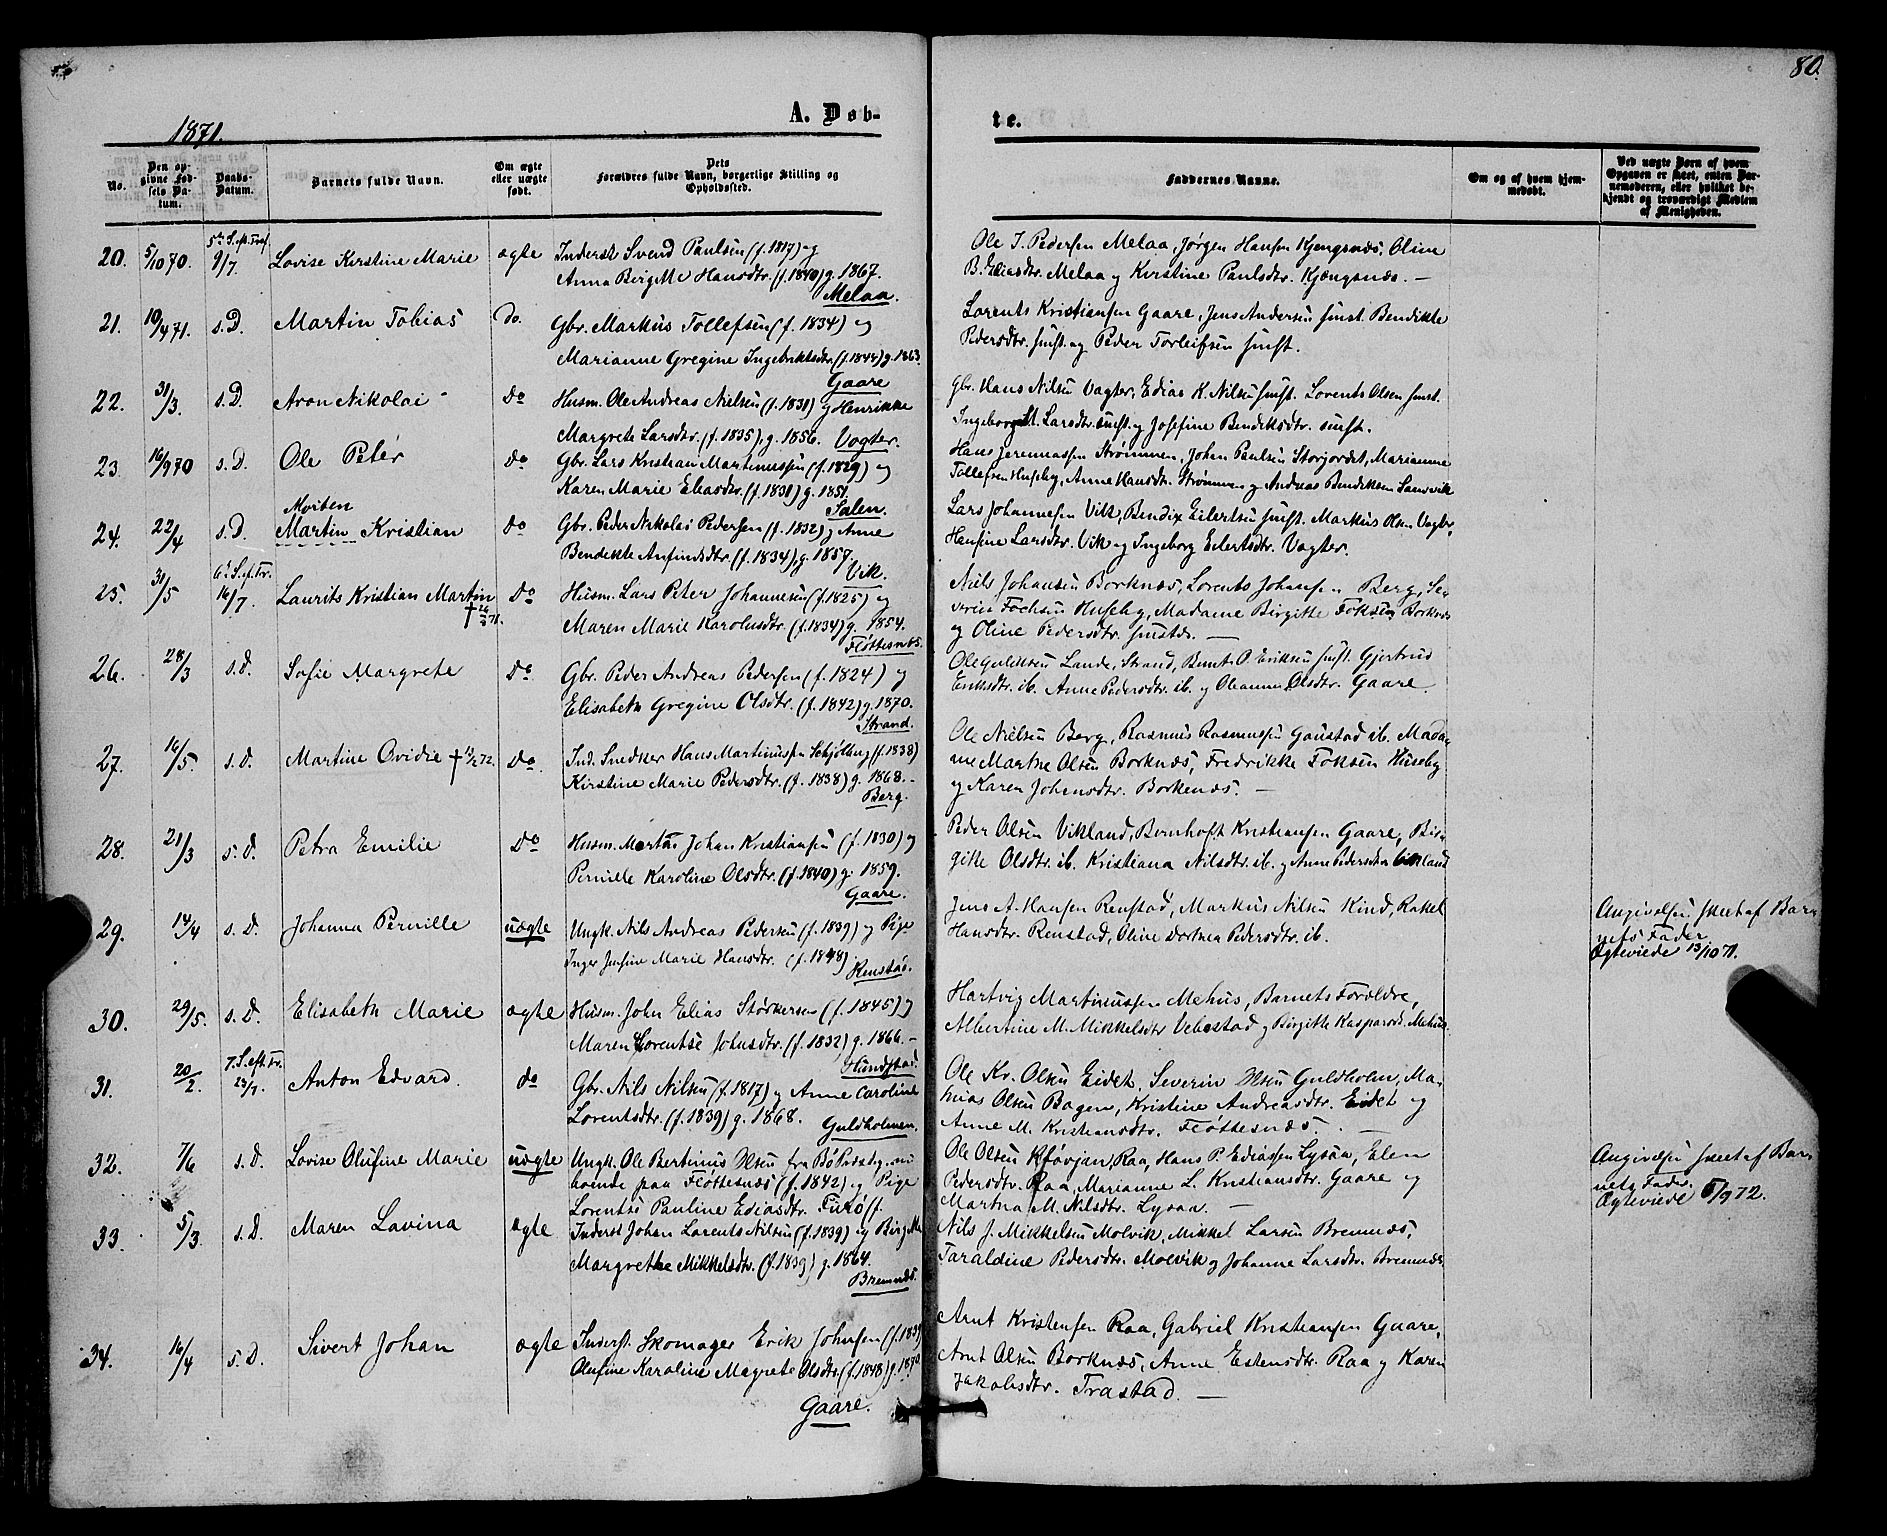 80.
1871.
A. Døb-
te.
No.
Den op-
givne Fød-
sels Da-
tum.
Daabs-
Datum.
Barnets fulde Navn.
Om ægte
eller uægte
født.
Dets
Forældres fulde Navn, borgerlige Stilling og
Opholdssted.
Faddernes Navne.
Om og af hvem hjem-
medøbt.
Ved uægte Børn af hvem
Opgaven er skeet, enten Bar-
nemoderen, eller hvilket be-
kjendt og troværdigt Medlem
af Menigheden.
20. 5/10 70. 5te S. eft. Tref. 9/7. Lovise Kirstine Marie ægte Inderst Svend Paulsen (f. 1817) og
Anna Birgitte Hansdtr. (f. 1840) g. 1867.
Melaa.
Ole J. Pedersen Melaa, Jørgen Hansen Kjengsnæs, Oline
B. Eliasdtr. Melaa og Kirstine Paulsdtr. Kjængsnæs. —
21. 10/4 71. s. D. Martin Tobias do. Gbr. Markus Tollefsen (f. 1834) og
Marianne Gregine Ingebriktsdtr. (f. 1844) g. 1863.
Gaare
Lorents Kristiansen Gaare, Jens Andersen smst. Bendikte
Pedersdtr. smst. og Peder Torleifsen smst.
22. 31/3. s. D. Aron Nikolai do Husm. Ole Andreas Nielsen (f. 1831) og Henrikke
Margrete Larsdtr. (f. 1835), g. 1856. Vogter.
Gbr. Hans Nilsen Vagter, Edias K. Nilsen smst. Lorents Olsen smst.
Ingeborg M. Larsdtr. smst. og Josefine Bendiksdtr. smst.
23. 16/9 70 s. D. Ole Peter do Gbr. Lars Kristian Martinussen (f. 1829) og
Karen Marie Eliasdtr. (f. 1831) g. 1851.
Salen.
Hans Jeremiassen Strømmen, Johan Paulsen Storjordet, Marianne
Tollefsen Huseby, Anne Hansdtr. Strømmen og Andreas Bendiksen Sandvik
24. 22/4 s. D. Morten
Martin Kristian do Gbr. Peder Nikolai Pedersen (f. 1832) og Anne
Bendikte Anfindsdtr. (f. 1834), g. 1857.
Vik.
Lars Johannesen Vik, Bendix Eilertsen smst. Markus Olsen Vagter,
Hansine Larsdtr. Vik og Ingeborg Eilertsdtr. Vagter.
25. 31/5 6te S. ef. Tr. 16/7. Laurits Kristian Martin † do Husm. Lars Peter Johannesen (f. 1825) og
Maren Marie Karolusdtr. (f. 1834) g. 1854.
Fløttesnæs.
Niels Johansen Borknæs, Lorents Johansen Berg, Se-
verin Fochsen Huseby, Madame Birgitte Foksen Borknæs
og Oline Pedersdtr. smstds. —
26. 28/3 s. D. Sofie Margrete do. Gbr. Peder Andreas Pedersen (f. 1824) og
Elisabeth Gregine Olsdtr. (f. 1842) g. 1870.
Strand.
Ole Guliksen Lande, Strand, Bernt O. Eriksen smst. Gjertrud
Eriksdtr. ib. Anne Pedersdtr. ib. og Oleanna Olsdtr. Gaare.
27. 16/5. s. D. Martine Ovidie † 12/2 72. do. Ind. Snedker Hans Martinussen Schjølberg (f. 1838)
Kirstine Marie Pedersdtr. (f. 1838) g. 1868. —
Berg.
Ole Nielsen Berg, Rasmus Rasmussen Gaustad ib. Mada-
me Martha Olsen Borknæs, Fredrikke Foksen Huseby
og Karen Johansdtr. Borkenæs. —
28. 21/3 s. D. Petra Emilie do Husm. Morten Johan Kristiansen (f. 1830) og
Pernille Karoline Olsdtr. (f. 1840) g. 1859.
Gaare.
Peder Olsen Vikland, Bernhoft Kristiansen Gaare, Bir-
gitte Olsdtr. ib. Kristiana Nilsdtr. ib. og Anne Pedersdtr Vikland
29. 14/4 s. D. Johanna Pernille uægte Ungk. Nils Andreas Pedersen (f. 1839) og Pige
Inger Jensine Marie Hansdtr. (f. 1848)
Renstad.
Jens A. Hansen Renstad, Markus Nilsen Kind, Rakel
Hansdtr. Renstad, Oline Dorthea Pedersdtr. ib.
Angivelsen skeet af Bar-
nets Fader
Ægteviede 13/10 71.
30. 29/5. s. D. Elisabeth Marie ægte Husm. John Elias Størkersen (f. 1845) og
Maren Lorentse Johnsdtr. (f. 1832) g. 1866. —
Hundstad.
Hartvig Martinussen Mehus, Barnets Forældre,
Albertine M. Mikkelsdtr Vebostad og Birgitte Kaspersd. Mehus.
31. 20/2. 7. S. eft. Tr. 23/7. Anton Edvard. do Gbr. Nils Nilsen (f. 1817) og Anne Caroline
Lorentsdtr. (f. 1839) g. 1868. Guldholmen.
Ole Kr. Olsen Eidet, Severin Olsen Guldholm, Ma-
thias Olsen Bogen, Kristine Andreasdtr. Eidet og
Anne M. Kristiansdtr. Fløttesnæs. —
32. 7/6 s. D. Lovise Olufine Marie uægte Ungk. Ole Bertinus Olsen fra Bø Præstg. nu
boende paa Fløttesnæs (f. 1842) og Pige
Lorentse Pauline Ediasdtr.
Ole Olsen Kjøvjan, Raa, Hans P. Ediassen Lysaa, Elen
Pedersdtr. Raa, Marianne L. Kristiansdtr. Gaare og
Martha M. Nilsdtr. Lysaa. —
Angivelsen skeet af Bar-
nets Fader.
Ægteviede 5/9 72.
33. 5/3. s. D. Maren Lavina ægte Inderst Johan Lorents Nilsen (f. 1839) og Birgitte
Margrethe Mikkelsdtr. (f. 1839) g. 1864.
Bremnæs.
Nils J. Mikkelsen Molvik, Mikkel Larsen Bremnæs,
Taraldine Pedersdtr. Molvik og Johanne Larsdtr. Bremnæs
34. 16/4 s. D. Sivert Johan ægte Inderst. Skomager Erik Johnsen (f. 1839)
Olufine Karoline Magrete Olsdtr. (f. 1848) g. 1870
Gaare.
Arnt Kristensen Raa, Gabriel Kristiansen Gaare,
Arnt Olsen Borknæs, Anne Estensdtr. Raa og Karen
Jakobsdtr. Trastad. —